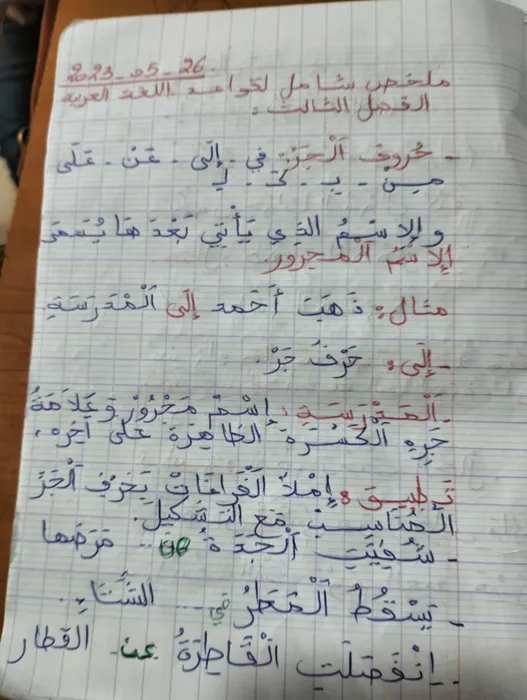 2023-05-26.
ملخص شامل لقواعد اللغة العربية
الفصل الثالث:
- حُروفُ اَلْجَرِّ: في - إِلَى - عَنْ - عَلَى
مِنْ - بِـ - كَـ - لِـ
والاِسْمُ الذِي يَأْتِي بَعْدَهَا يُسَمَى
الِاسْمُ اَلْمَجْرُورْ.
مثال: ذَهَبَ أَحْمد إِلَى اَلْمَدْرَسَةِ.
- إِلَى: حَرْفُ جَرْ.
- اَلْمَدْرَسَةِ: إِسْمْ مَجْرُورْ وَعَلاَمَةُ
جَرِهِ اَلْكَسْرَةُ الظَاهِرَة عَلَى آخِرِهِ.
تَطبيق: إِمْلَأْ اَلْفَراغَاتْ بِحَرْفِ اَلْجَرِّ
اَلْمُنَاسِبْ مَعَ التَشْكِيل.
- شُفِيَتِ اَلْجَدَةُ من ... مَرَضها
- يَسْقُطُ اَلْمَطَرُ في ... الشِّتَاءِ.
- اِنْفَصَلَتِ اَلْقَاطِرَةُ عن القطار